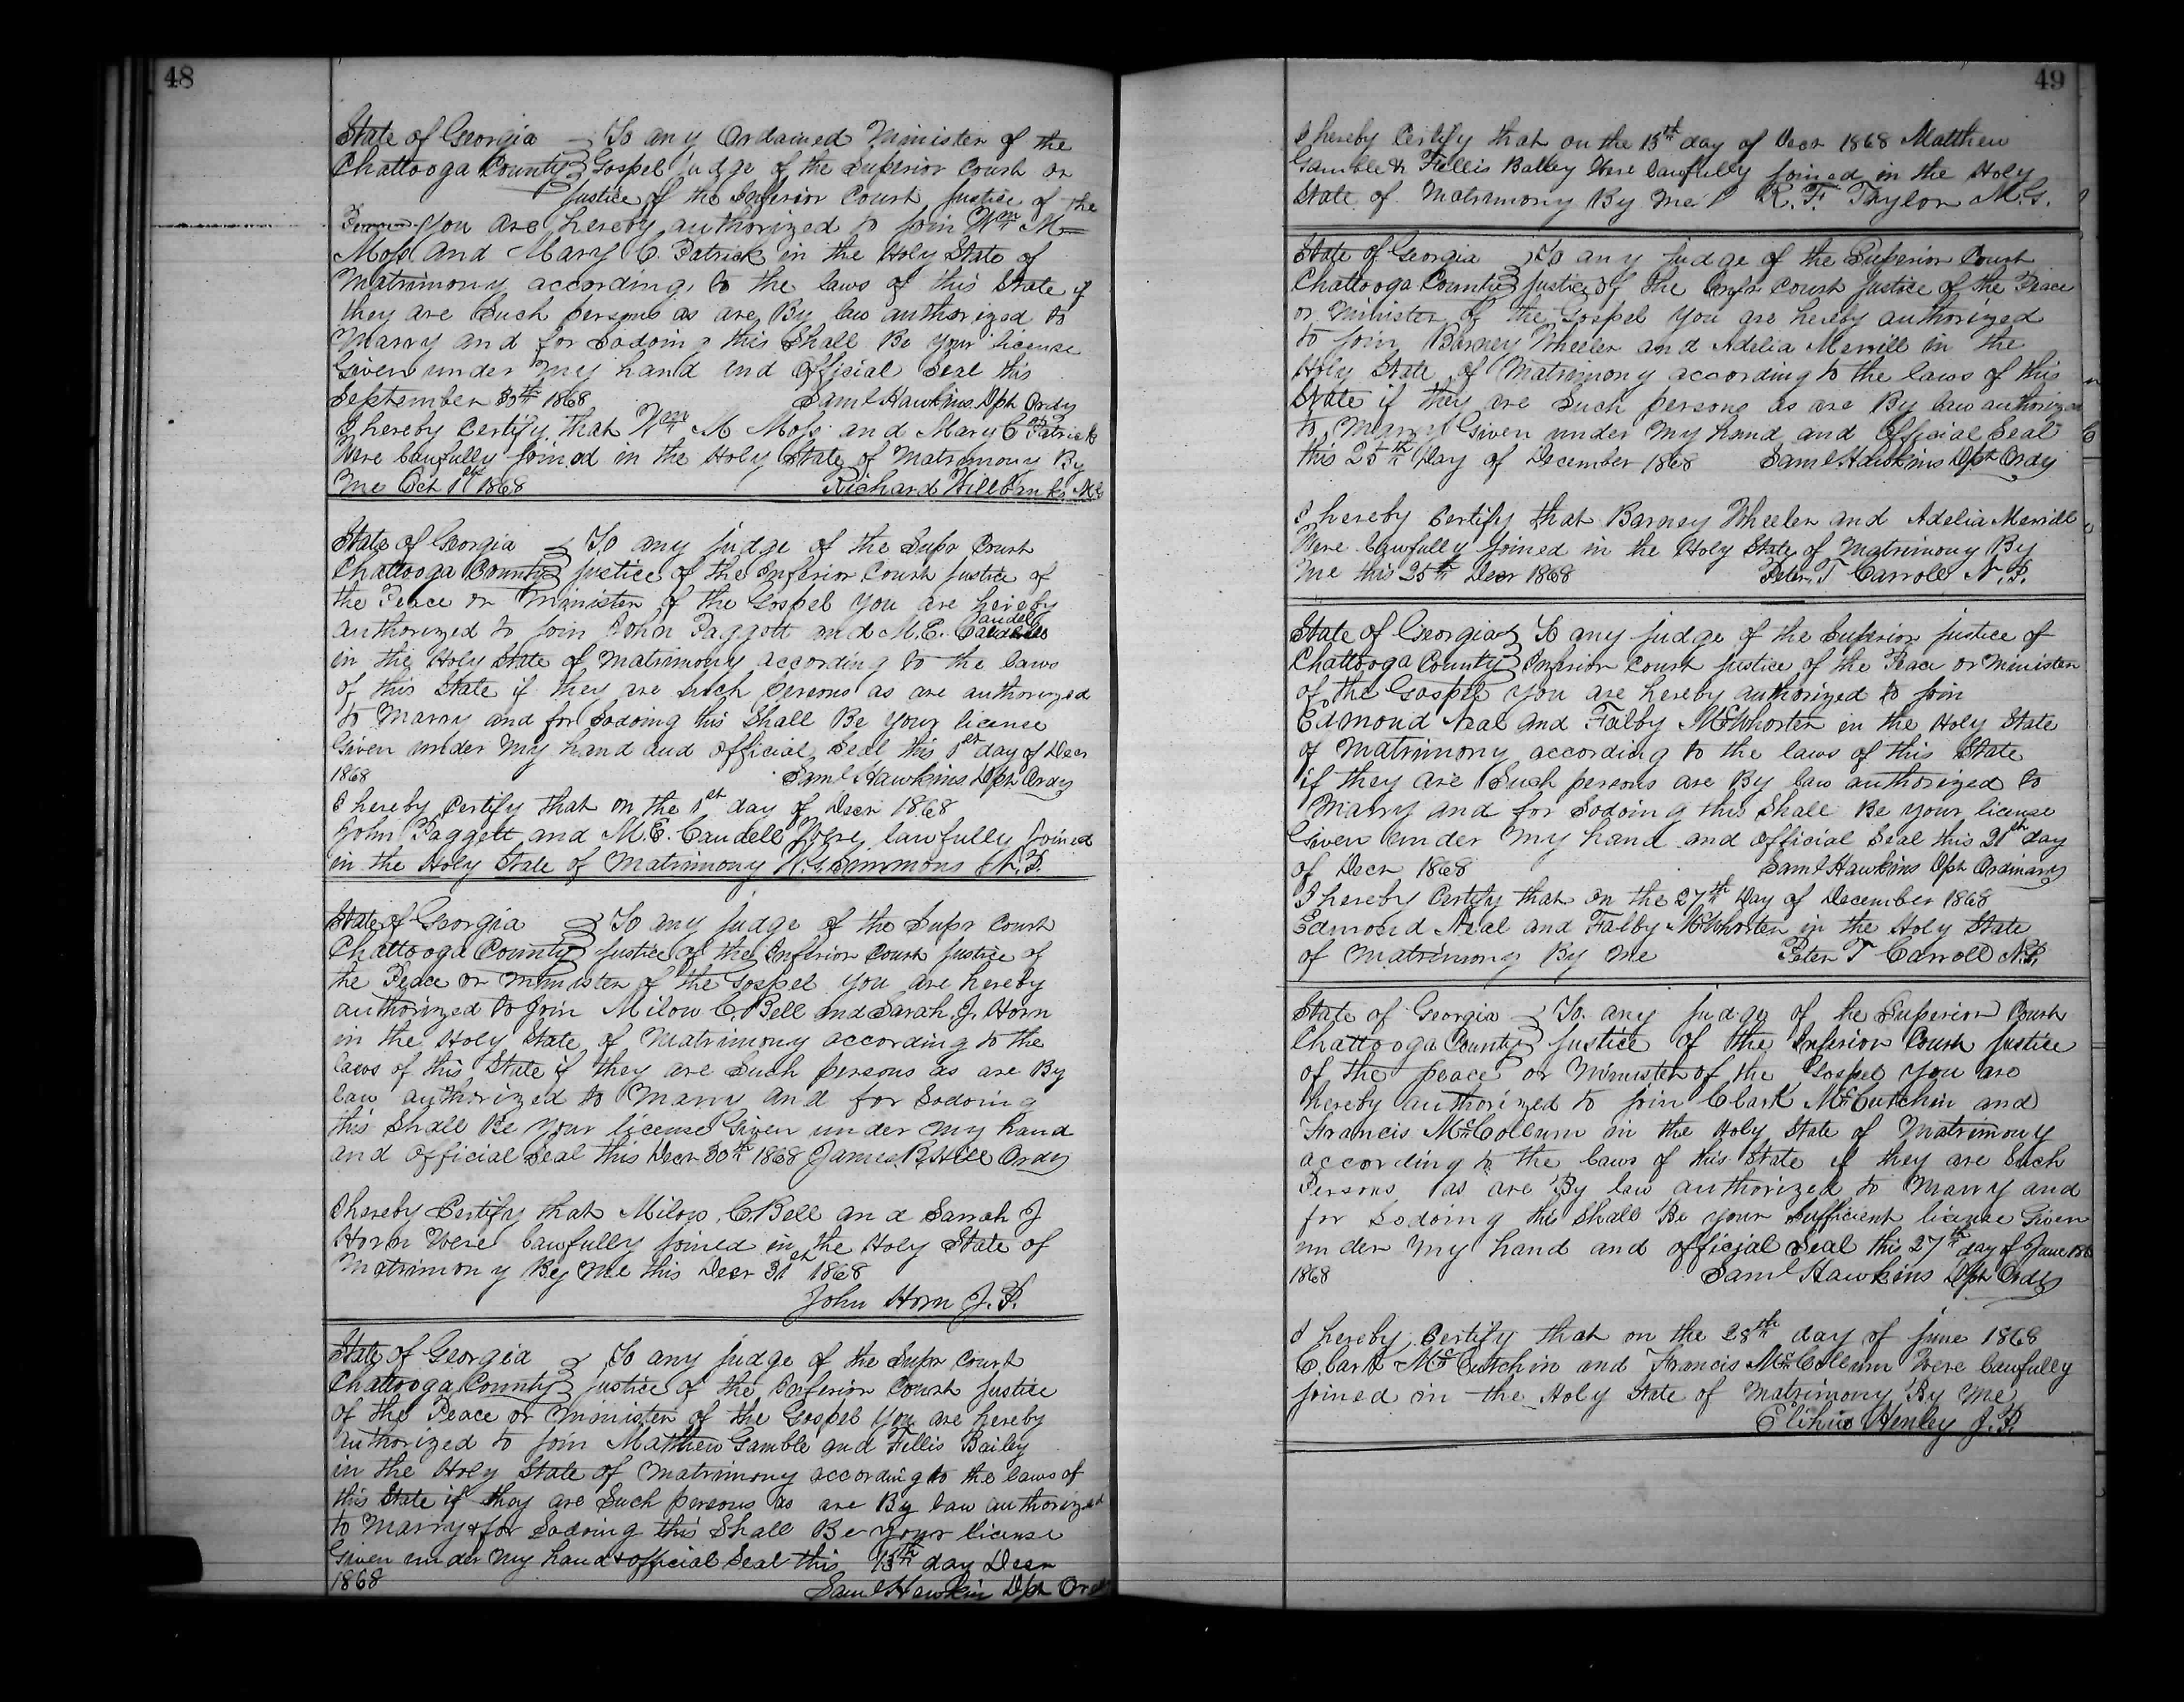 48
State of Georgia To any Ordained Minister of the
Chattooga County Gospel judge of the Superior Court or
justice of the Inferior Court justice of the
you are hereby authorized to join Wm M
Moss and Mary C. Patrick in the Holy State of
Matrimony according to the laws of this State if
they are Such persons as are By law authorized to
Marry and for Sodoing this Shall Be your license
Given under My hand and Official Seal this
September 30th 1868 Saml Hawkins Dpt Ordy
I hereby Certify that Wm M Moss and Mary C Patrick
Were Lawfully joined in the Holy State of Matrimony By
Me Oct 1st 1868 Richard Hillbanks M.G
State of Georgia To any judge of the Supr Court
Chattooga County justice of the Inferior Court justice of
the Peace or Minister of the Gospel you are hereby
Caudell
authorized to join John Paggott and M.E.
in the Holy State of Matrimony according to the laws
of this State if they are Such persons as are authorized
to Marry and for Sodoing this Shall Be your license
Given under My hand and Official Seal this 1st day of Decr
1868 Saml Hawkins Dpt Ordy
I hereby Certify that on the 1st day of Decr 1868
John Paggett and M.E. Caudell Were lawfully joined
in the Holy State of Matrimony Simmons N.P.
State of Georgia To any judge of the Supr Court
Chattooga County justice of the Inferior Court justice of
the Peace or Minister of the Gospel you are hereby
authorized to join Milow C. Bell and Sarah J. Horn
in the Holy State of Matrimony according to the
laws of this State if they are Such persons as are By
law authorized to Marry and for Sodoing
this Shall Be your license Given under My hand
and Official Seal this Decr 30th 1868 James R. Hill Ordy
I hereby Certify that Milow C. Bell and Sarrah J
Horn Were Lawfully joined in the Holy State of
Matrimony By Me this Decr 31st 1868
John Horn J.P.
State of Georgia To any judge of the Supr Court
Chattooga County justice of the Inferior Court justice
of the Peace or Minister of the Gospel you are hereby
authorized to join Matthew Gamble and Fellis Bailey
in the Holy State of Matrimony according to the laws of
this State if they are Such persons as are By law authorized
to Marry & for Sodoing this Shall Be your license
Given under My hand & official Seal this 15th day Decr
1868 Saml Hawkin Dpt Ord
49
I hereby Certify that on the 15th day of Decr 1868 Matthew
Gamble & Fellis Balley Were Lawfully joined in the Holy
State of Matrimony By Me R. F. Taylor M.G.
State of Georgia To any judge of the Superior Court
Chattooga County justice of the Infr Court justice of the Peace
or Minister of the Gospel you are hereby authorized
to join Barney Wheeler and Adelia Merrill in the
Holy State of Matrimony according to the laws of this
State if they are Such persons as are By law authorized
to Marry Given under My hand and Official Seal
this 25th Day of December 1868 Saml Hawkins Dpt Ordy
I hereby Certify that Barney Wheeler and Adelia Merrill
Were Lawfully joined in the Holy State of Matrimony By
Me this 25th Decr 1868 Peter T Carroll N.P.
State of Georgia To any judge of the Superior justice of
Chattooga County Inferior Court justice of the Peace or Minister
of the Gospel you are hereby authorized to join
Edmond Neal and Falby McWhorter in the Holy State
of Matrimony according to the laws of this State
if they are Such persons are By law authorized to
Marry and for Sodoing this Shall Be your license
Given under My hand and Official Seal this day
of Decr 1868 Saml Hawkins Dpt Ordinary
I hereby Certify that on the 27th Day of December 1868
Edmond Neal and Falby McWhorter in the Holy State
of Matrimony By Me Peter T Carroll N.P.
State of Georgia To any judge of he Superior Court
Chattooga County justice of the Inferior Court justice
of the peace or Minister of the Gospel you are
hereby authorized to join Clark McCutchin and
Francis McCollum in the Holy State of Matrimony
according to the laws of this State if they are Such
Persons as are By law authorized to Marry and
for Sodoing this Shall Be your sufficient license Given
under My hand and official Seal this 27th day of June 186
1868 Saml Hawkins Dpt Ordy
I hereby Certify that on the 28th day of june 1868
Clark McCutchin and Francis McCollum Were Lawfully
joined in the Holy State of Matrimony By Me
Elihu Henley J.P.